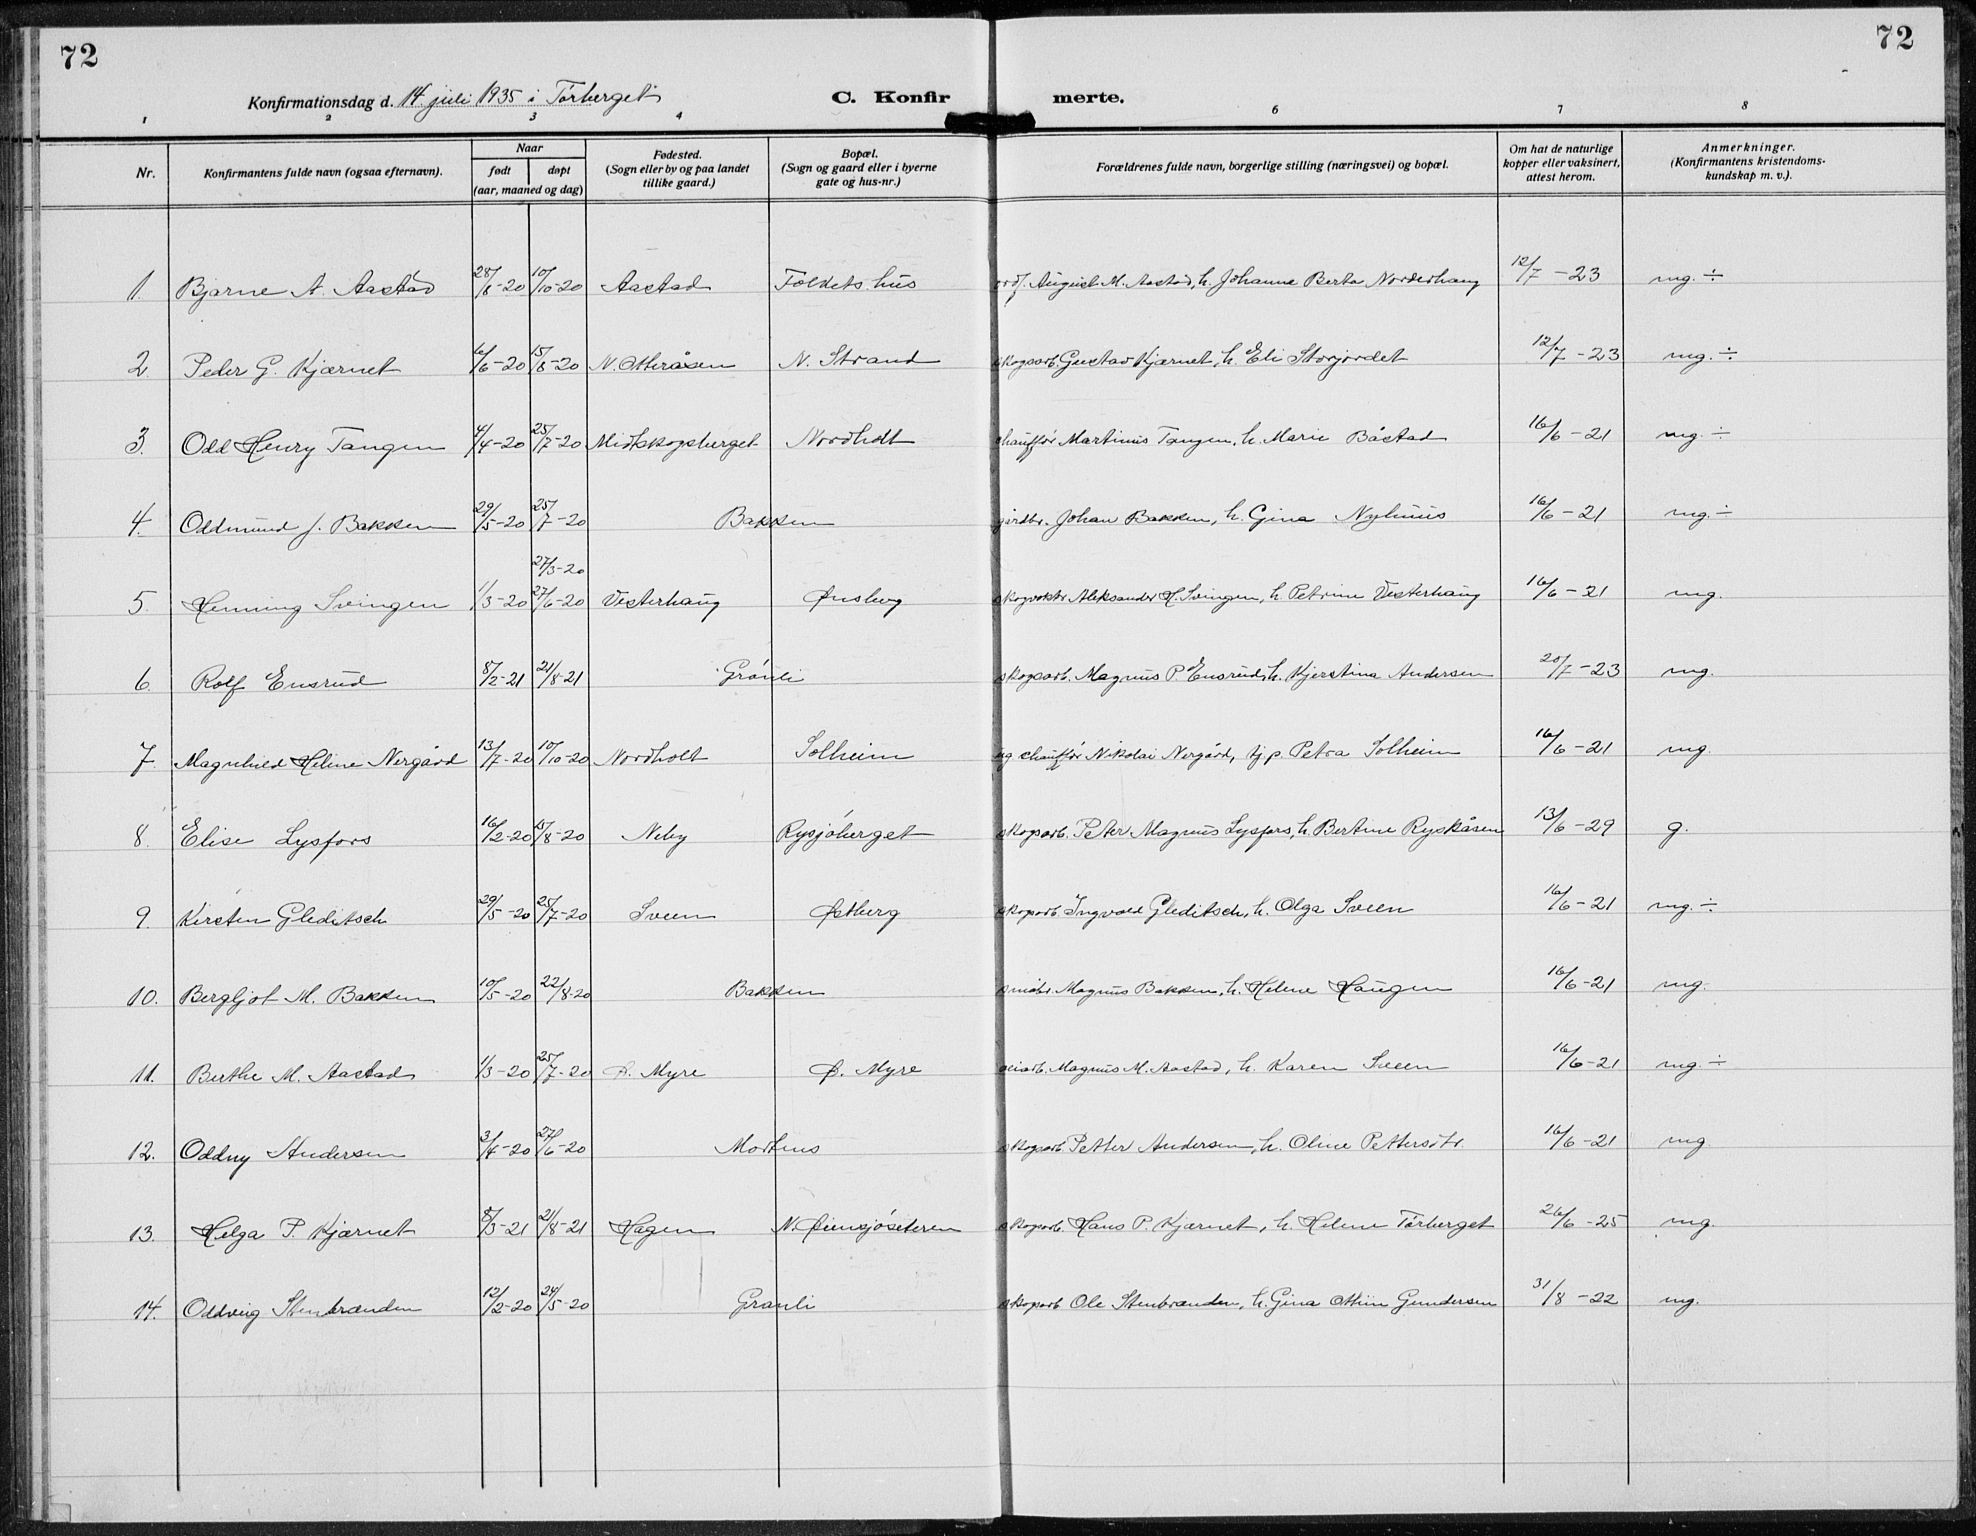 72
72
Konfirmationsdag d. 14 juli 1935 i Tørberget
C. Konfir merte.
1 2 3 4 6 7 8
Nr.
Konfirmantens fulde navn (ogsaa efternavn).
Naar
født
døpt
(aar, maaned og dag)
Fødested.
(Sogn eller by og paa landet
tillike gaard.)
Bopæl.
(Sogn og gaard eller i byerne
gate og hus-nr.)
Forældrenes fulde navn, borgerlige stilling (næringsvei) og bopæl.
Om hat de naturlige
kopper eller vaksinert,
attest herom.
Anmerkninger.
(Konfirmantens kristendoms-
kundskap m. v.).
1. Bjarne A. Aastad 28/8-20 10/10-20 Aastad Foldets hus August M. Aastad, h. Johanne Berta Norderhaug 12/7 -23 mg. ÷
2. Peder G. Kjærnet 6/6-20 15/8-20 N. Otteråsen N. Strand skogsarb. Gustav Kjærnet, h. Eli Storjordet 12/7 -23 mg. ÷
3. Odd Henry Tangen 4/4-20 25/7-20 Midtskogsberget Nordholt chauffør Martinus Tangen, h. Marie Båstad 16/6 -21 mg. ÷
4. Oddmund J. Bakken 29/5-20 25/7-20 Bakken gårdbr. Johan Bakken, h. Gina Nyhuus 16/6 -21 mg. ÷
27/3-20
5. Henning Svingen 1/3-20 27/6-20 Vesterhaug Ønsberg Aleksander H. Svingen, h. Petrine Vesterhaug 16/6 -21 mg.
6. Rolf Ensrud 8/2-21 21/8-21 Grønli skogsarb. Magnus P. Ensrud, h. Kjerstina Andersen 20/7 -23 mg.
7. Magnhild Heline Nergård 13/7-20 10/10-20 Nordholt Solheim ug chauffør Nikolai Nergård, tj.p. Petra Solheim 16/6 -21 mg.
8. Elise Lysfors 16/2-20 15/8-20 Neby Rysjøberget skogsarb. Peter Magnus Lysfors, h. Bertine Ryskåsen 13/6 -29 g.
9. Kirsten Gleditsch 29/5-20 25/7-20 Sveen Østberg skogsarb. Ingvald Gleditsch, h. Olga Sveen 16/6 -21 mg. ÷
10. Bergljot M. Bakken 10/5-20 22/8-20 Bakken småbr. Magnus Bakken, h. Helene Haugen 16/6 -21 mg.
11. Berthe M. Aastad 1/3-20 25/7-20 Ø. Myre Ø. Myre veiarb. Magnus M. Aastad, h. Karen Sveen 16/6 -21 mg. ÷
12. Oddny Andersen 3/4-20 27/6-20 Mortens skogsarb. Petter Andersen, h. Oline Pettersdtr. 16/6 -21 mg.
13. Helga P. Kjærnet 8/3-21 21/8-21 Hagen N. skogsarb. Hans P. Kjærnet, h. Helene Tørberget 26/6 -25 mg.
14. Oddveig Stenbrænden 12/2-20 24/5-20 Granli skogsarb. Ole Stenbrænden, h. Gina Gundersen 31/8 -22 mg.